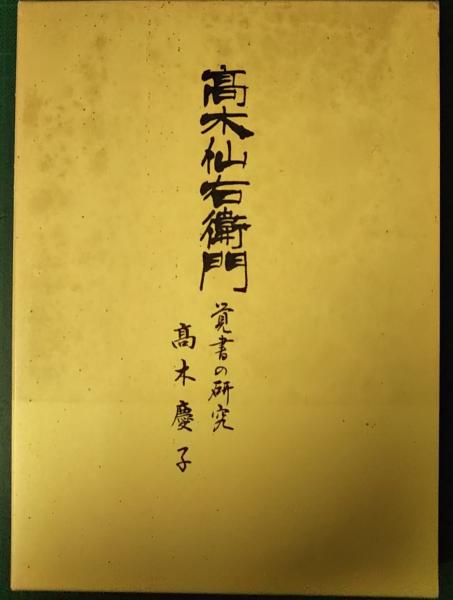 髙木仙右衛門
覚書の研究
髙木慶子